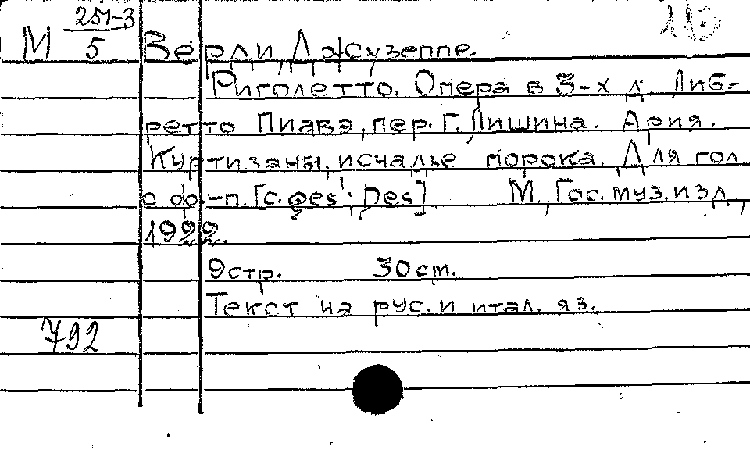 251-3
М 5 Верди, Джузеппе.
Риголетто. Опера в 3-х д. Либ-
ретто Пиавэ, пер. Г. Лишина. Ария.
Куртизаны, исчадье порока. Для гол.
с ф.-п. М., Гос. муз. изд.,
1922.
9 стр. 30 см.
Текст на рус. и итал. яз.
792